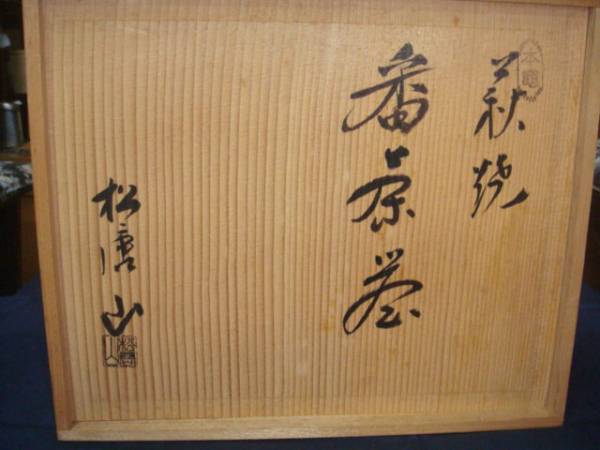 萩焼
番茶器
松唐山